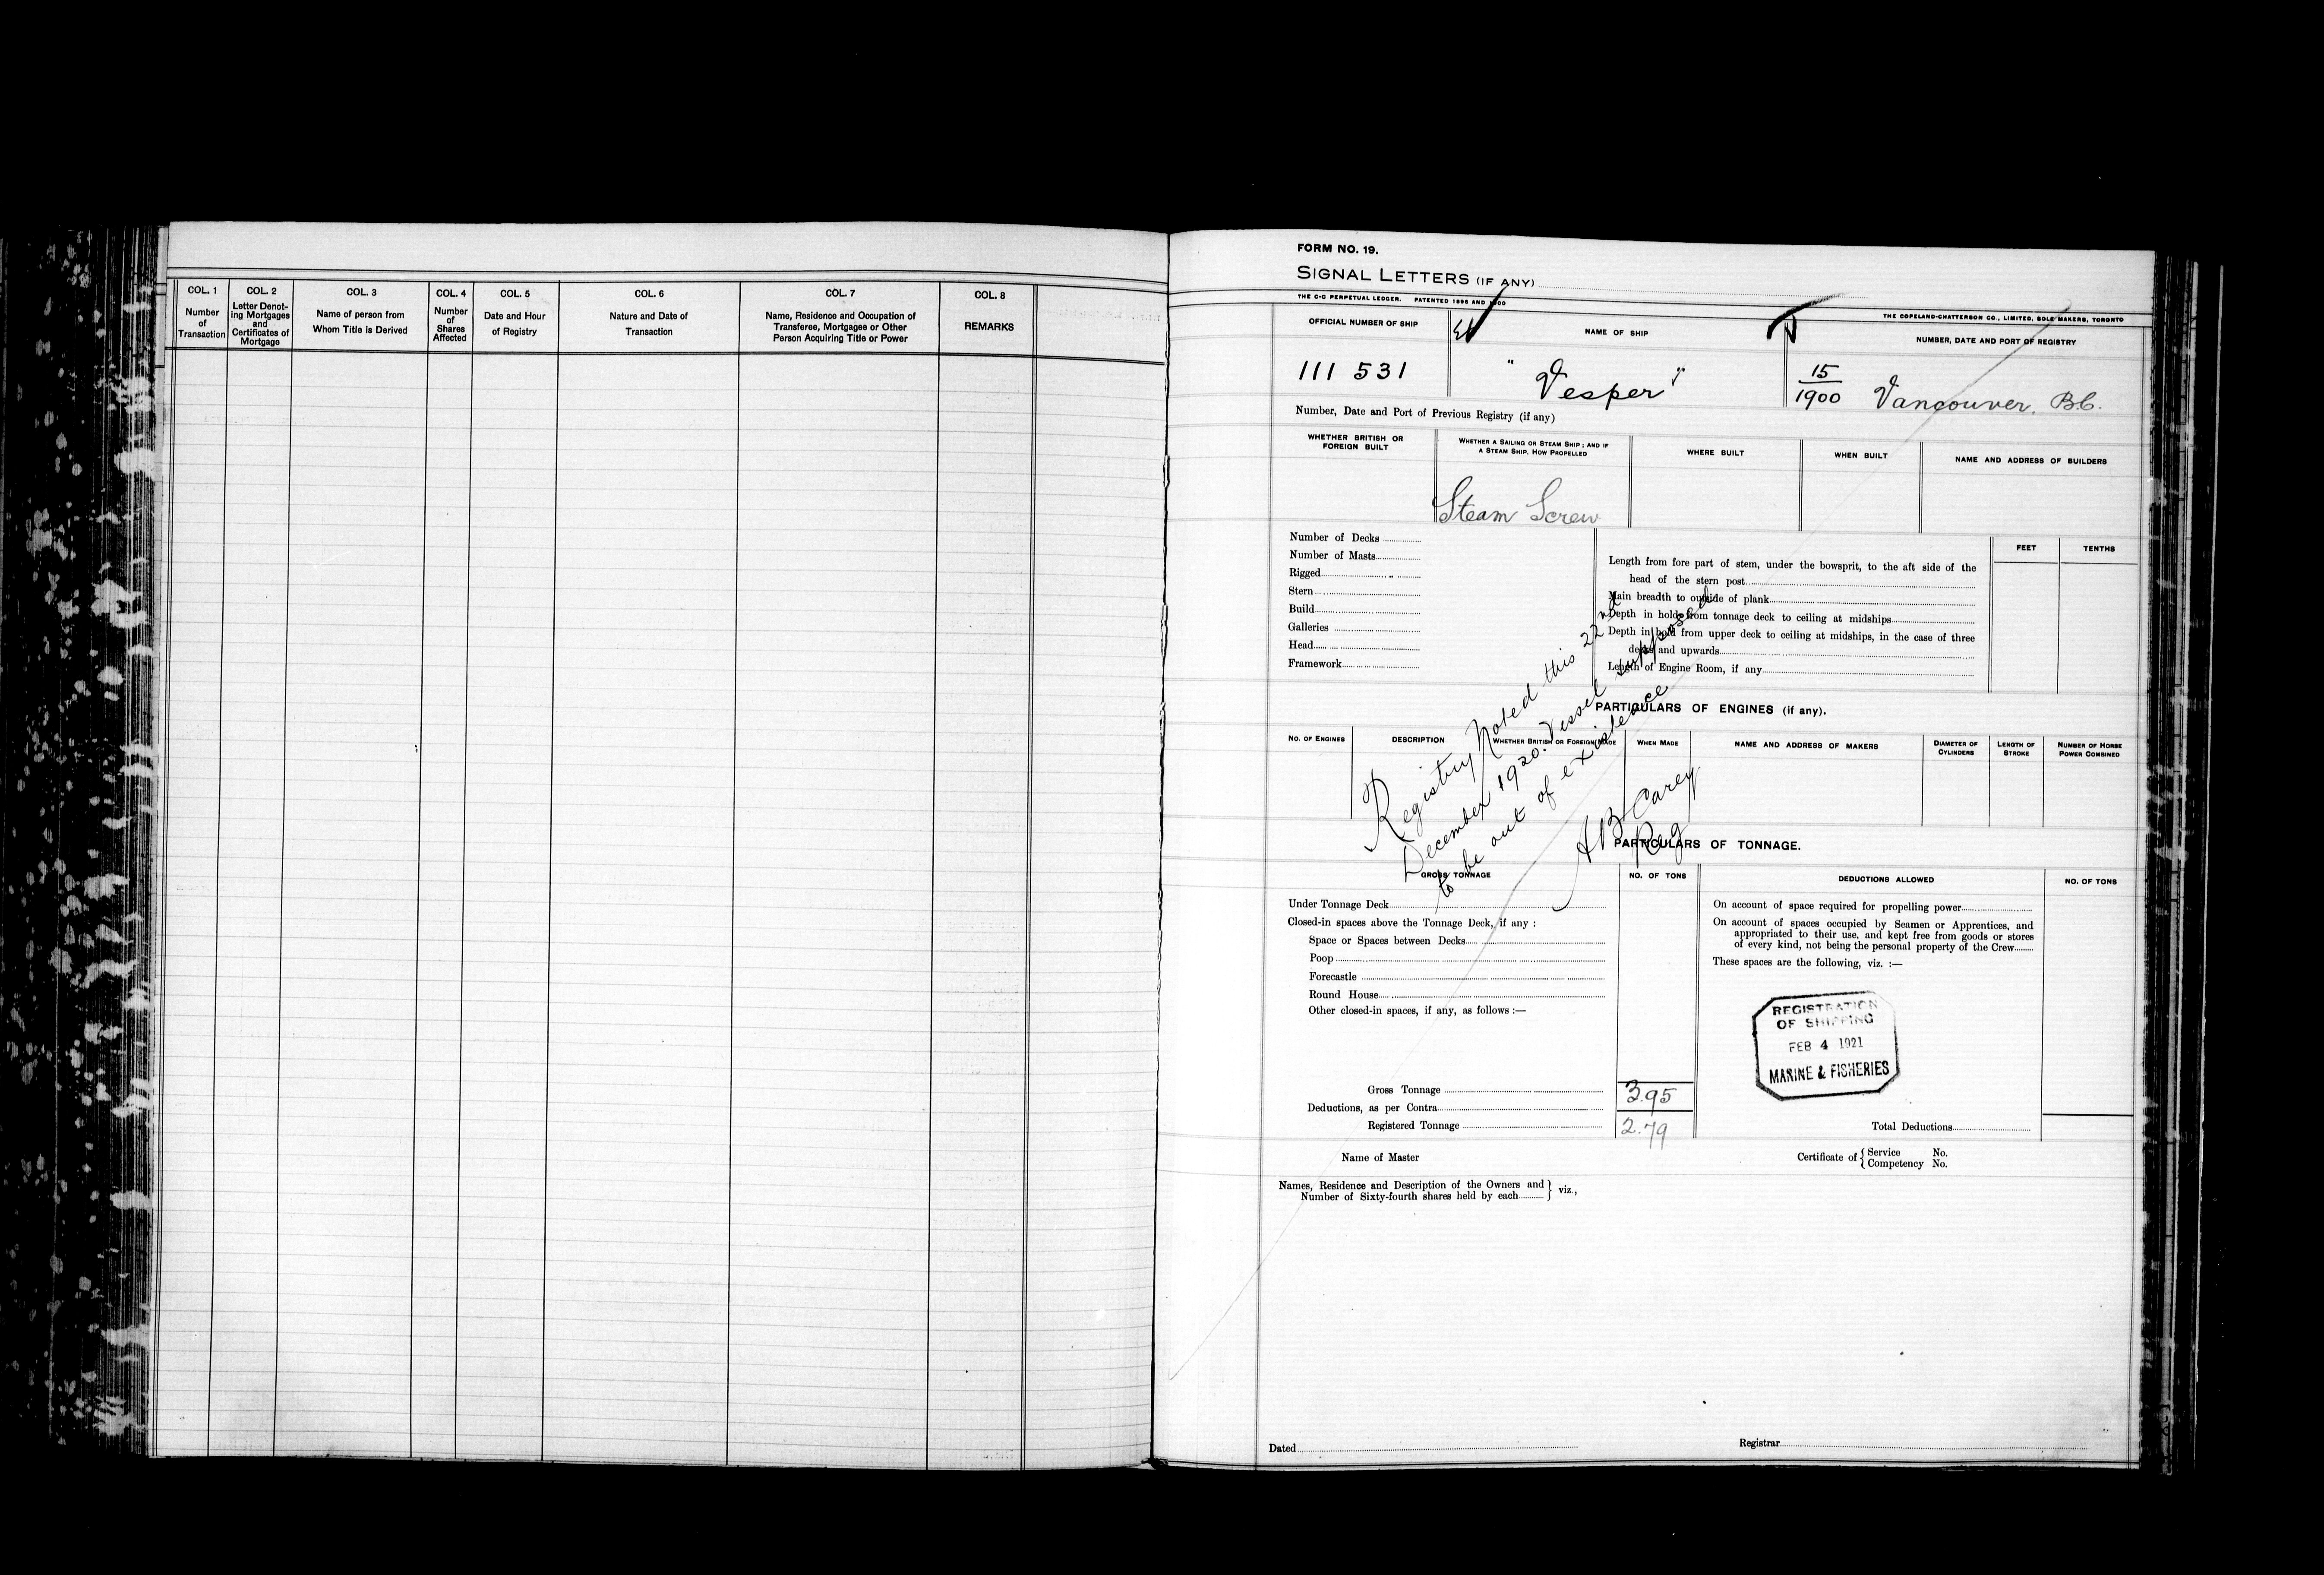 COL. 1
Number
of
Transaction
COL. 2
Letter Denot-
ing Mortgages
and
Certificates of
Mortgage
COL. 3
Name of person from
Whom Title is Derived
COL. 4
Number
of
Shares
Affected
COL. 5
Date and Hour
of Registry
COL. 6
Nature and Date of
Transaction
COL. 7
Name, Residence and Occupation of
Transferee, Mortgagee or Other
Person Acquiring Title or Power
COL. 8
REMARKS
FORM NO. 19.
SIGNAL LETTERS (IF ANY)
THE C-C PERPETUAL LEDGER. PATENTED 1896 AND 1900
THE COPELAND-CHATTERSON CO., LIMITED, SOLE MAKERS, TORONTO
OFFICIAL NUMBER OF SHIP
111 531
NAME OF SHIP
"Vesper"
NUMBER, DATE AND PORT OF REGISTRY
15
1900 Vancouver. B.C.
Number, Date and Port of Previous Registry (if any)
WHETHER BRITISH OR
FOREIGN BUILT
WHETHER A SAILING OR STEAM SHIP; AND IF
A STEAM SHIP, HOW PROPELLED
Steam Screw
WHERE BUILT
WHEN BUILT
NAME AND ADDRESS OF BUILDERS
Number of Decks
Number of Masts
Rigged
Stern
Build
Galleries
Head
Framework
FEET
TENTHS
Length from fore part of stem, under the bowsprit, to the aft side of the
head of the stern post
Main breadth to outside of plank
Depth in hold from tonnage deck to ceiling at midships
Depth in hold from upper deck to ceiling at midships, in the case of three
decks and upwards
Length of Engine Room, if any
Registry Noted this 22nd
December 1920. Vessel supposed
to be out of existence
A B Carey
Reg
PARTICULARS OF ENGINES (if any).
NO. OF ENGINES
DESCRIPTION
WHETHER BRITISH OR FOREIGN MADE
WHEN MADE
NAME AND ADDRESS OF MAKERS
DIAMETER OF
CYLINDERS
LENGTH OF
STROKE
NUMBER OF HORSE
POWER COMBINED
PARTICULARS OF TONNAGE.
GROSS TONNAGE
NO. OF TONS
DEDUCTIONS ALLOWED
NO. OF TONS
Under Tonnage Deck
Closed-in spaces above the Tonnage Deck, if any :
Space or Spaces between Decks
Poop
Forecastle
Round House
Other closed-in spaces, if any, as follows :—
Gross Tonnage 3.95
Deductions, as per Contra
Registered Tonnage 2.79
On account of space required for propelling power
On account of spaces occupied by Seamen or Apprentices, and
appropriated to their use, and kept free from goods or stores
of every kind, not being the personal property of the Crew
These spaces are the following, viz. :—
REGISTRATION
OF SHIPPING
FEB 4 1921
MARINE & FISHERIES
Total Deductions
Name of Master
Certificate of { Service No.
Competency No.
Names, Residence and Description of the Owners and
Number of Sixty-fourth shares held by each } viz.,
Dated
Registrar